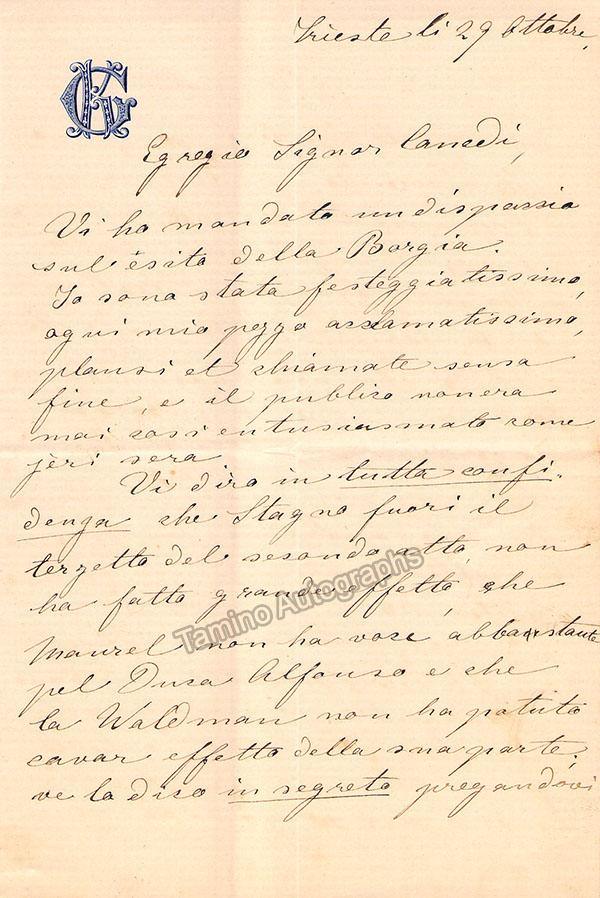 Trieste li 29 Ottobre,
Egregio Signor Canedi,
Vi ho mandato un dispaccio
sul ésito della Borgia.
Io sono stata festeggiatissima,
ogni mio pezzo acclamatissimo,
plausi et chiamate senza
fine, e il publico non era
mai cosi entusiasmato come
jeri sera
Vi diro in tutta confi-
denza che Stagno fuori il
terzetto del secondo atto, non
ha fatto grande effetto, che
Maurel non ha voce abbastante
pel Duca Alfonso e che
la Waldman non ha potuto
cavar effetto della sua parte;
ve lo dico in segreto pregandovi
Tamino Autographs